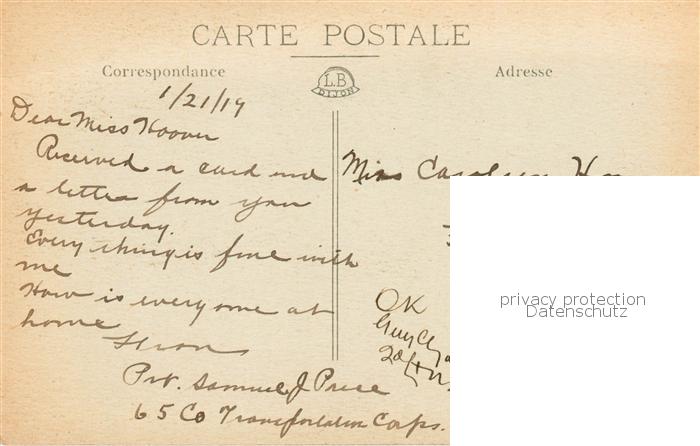 CARTE POSTALE
Correspondance
L.B
DIJON
Adresse
1/21/19
Dear Miss Hoover
Received a card and
a letter from you
yesterday.
Every thing is fine with
me
How is everyone at
home
Pvt. Samuel J Price
65 Co Transportation Corps.
Miss
OK
privacy protection
Datenschutz